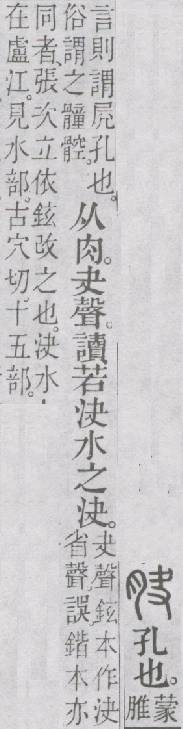 肤孔也。蒙
脽
言則謂尻孔也。
俗謂之
从肉。夬聲。讀若決水之決。
夬聲鉉本作決
省聲。誤。鍇本亦
同者、張次立依鉉改之也。決水
在盧江。見水部。古穴切。十五部。